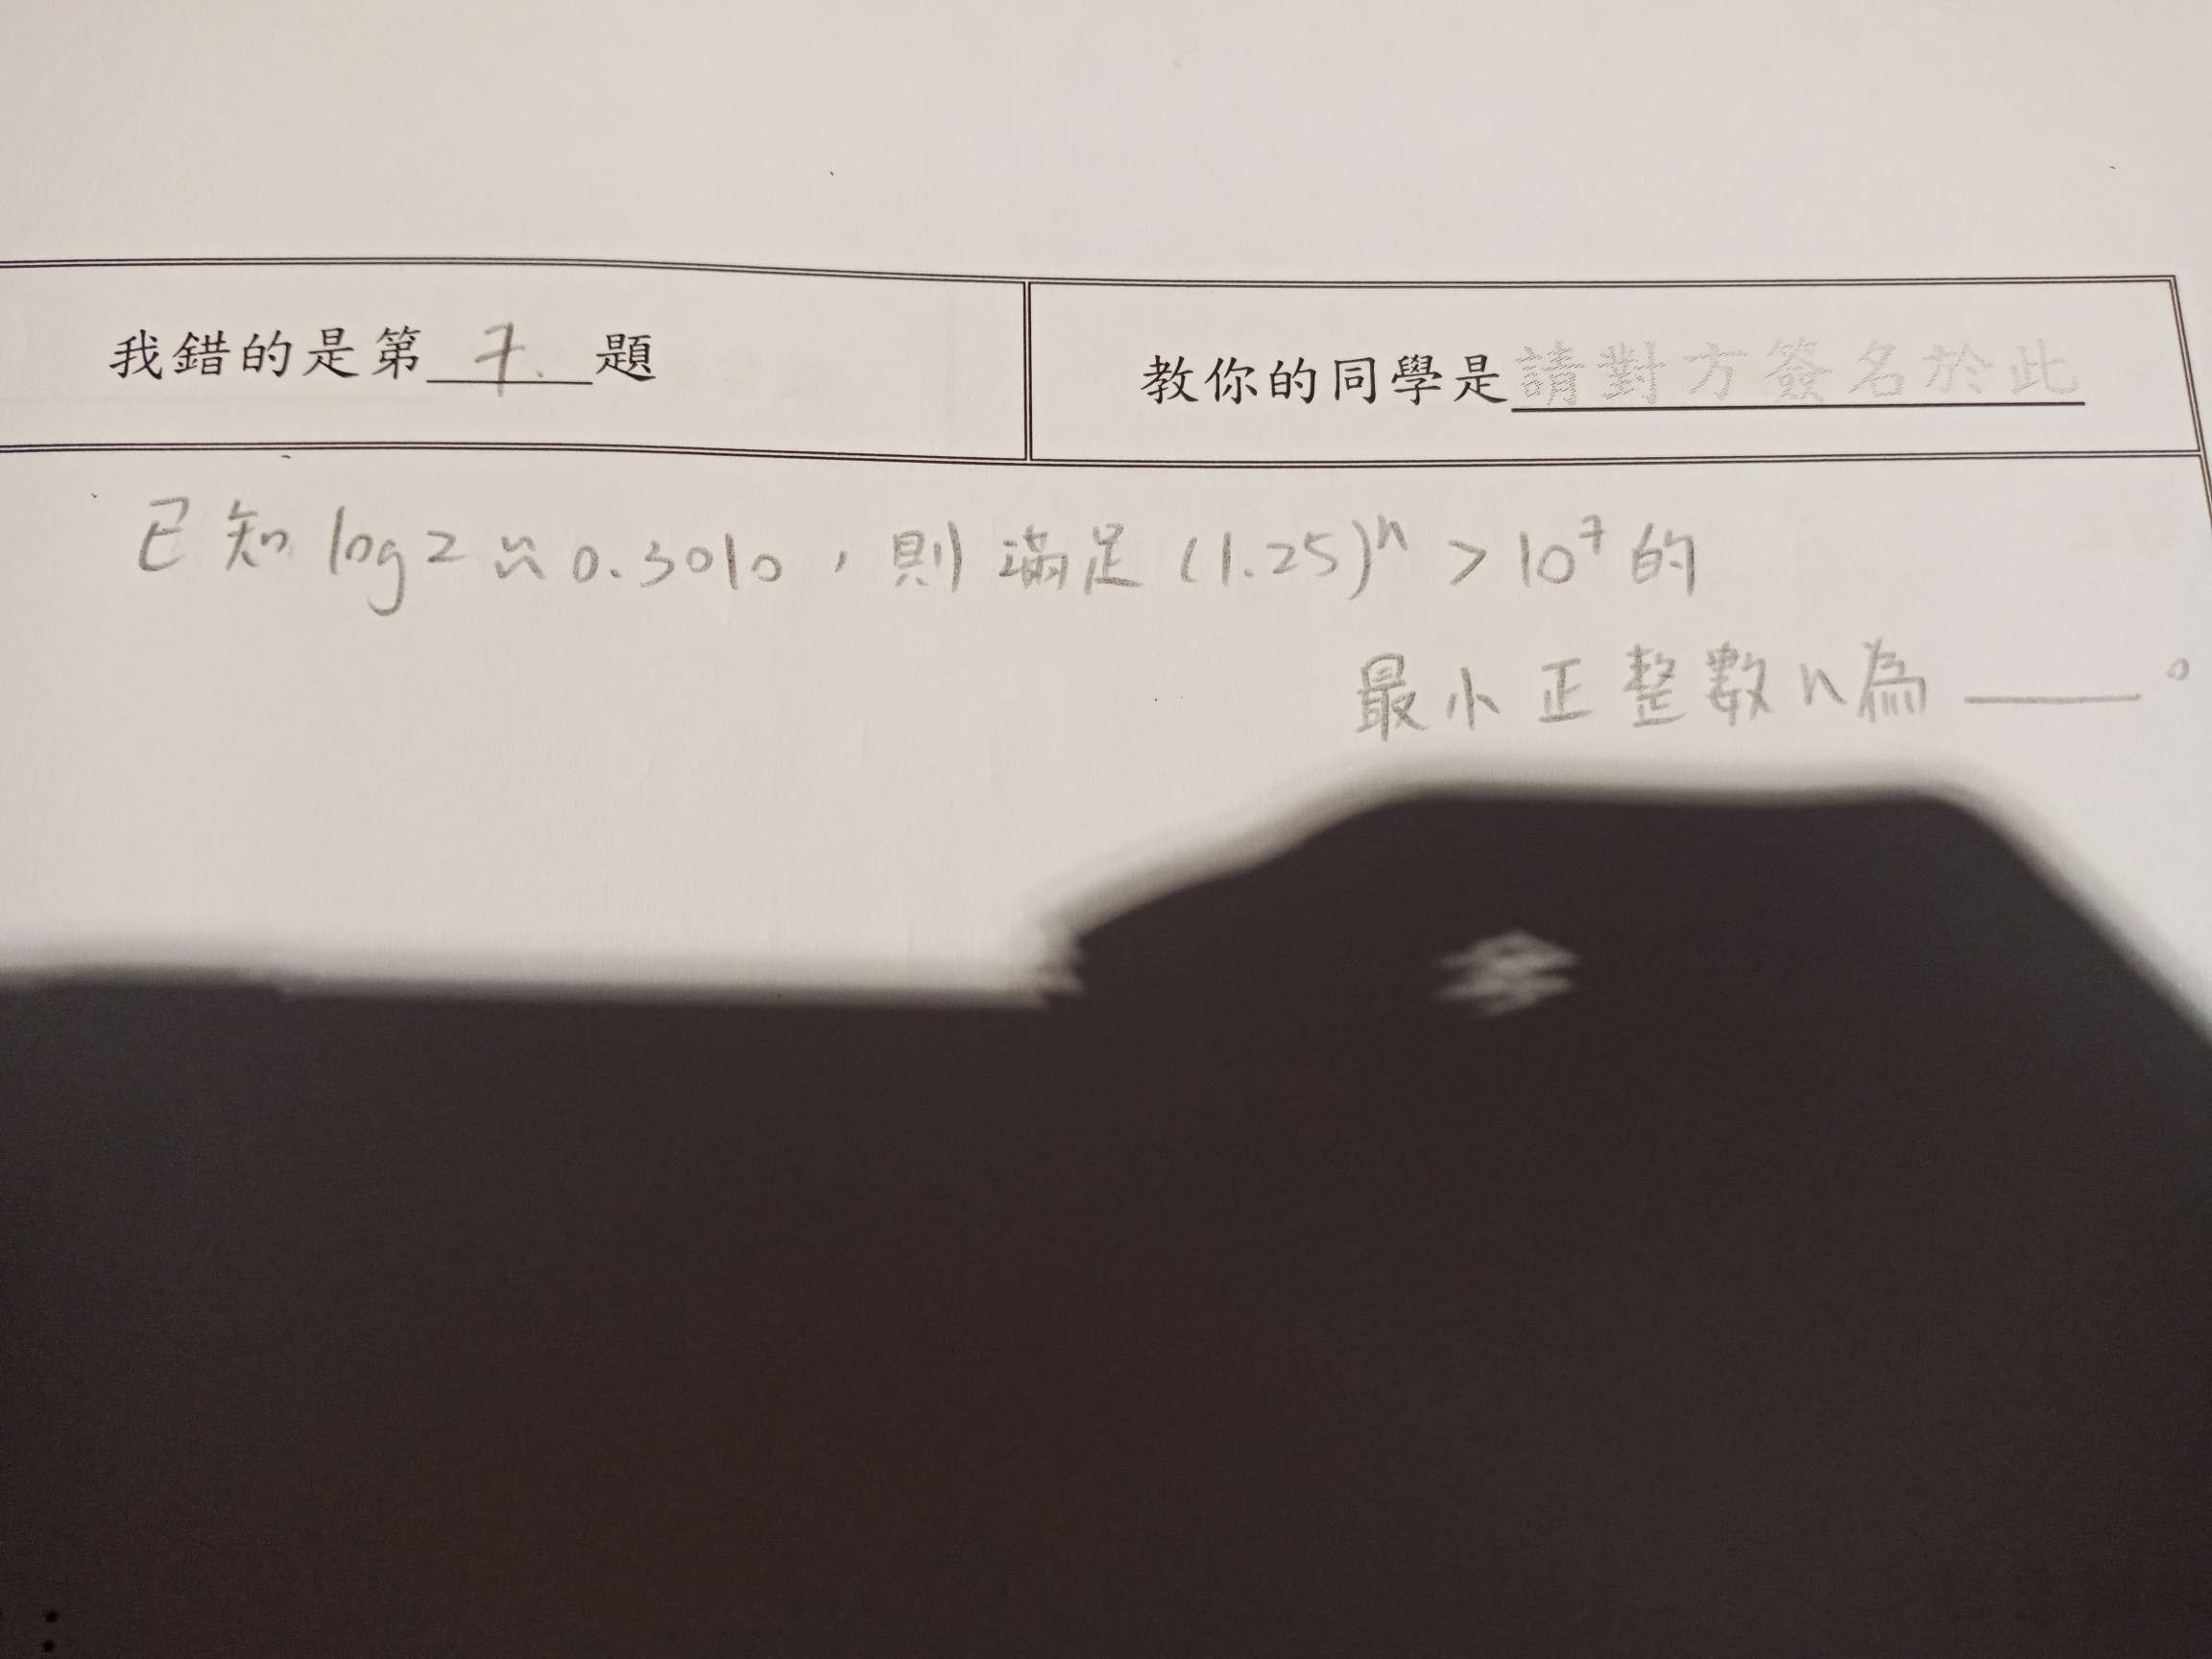 我錯的是第 7. 題
教你的同學是請對方簽名於此
已知 log2≈0.3010,則滿足(1.25)ⁿ>10⁷的
最小正整數n為______。